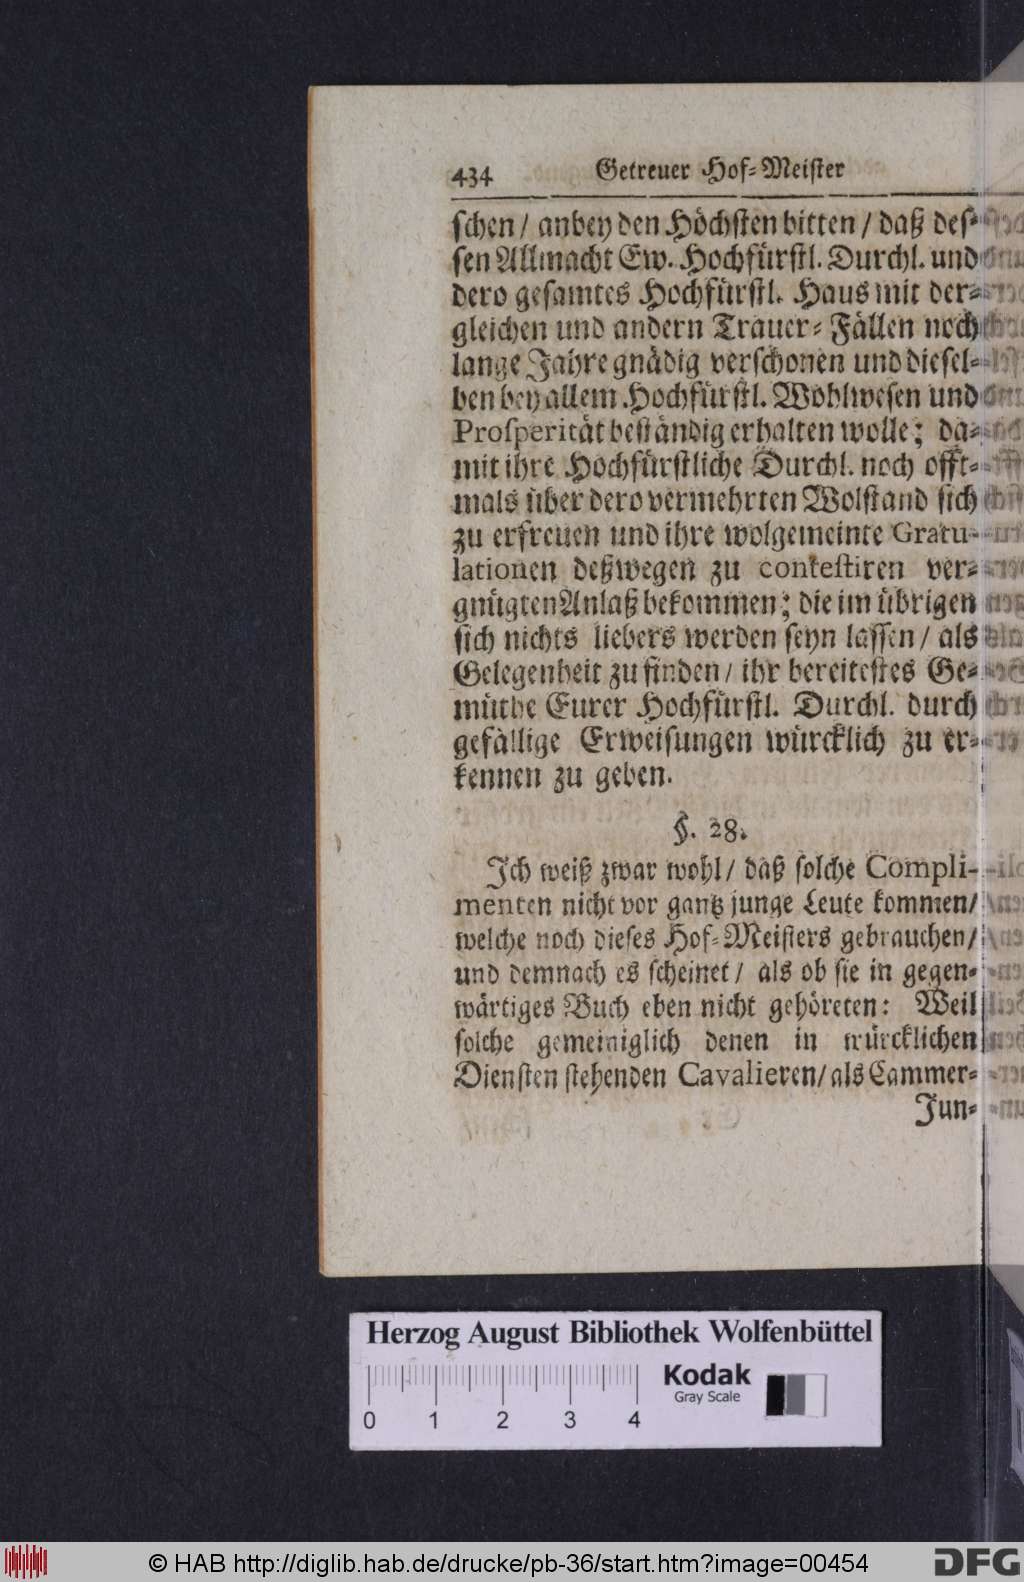 434 Getreuer Hof-Meister
schen / anbey den Höchsten bitten / daß des-
sen Allmacht Ew. Hochfürstl. Durchl. und
dero gesamtes Hochfürstl. Haus mit der-
gleichen und andern Trauer-Fällen noch
lange Jahre gnädig verschonen und diesel-
ben bey allem Hochfürstl. Wohlwesen und
Prosperität beständig erhalten wolle; da-
mit ihre Hochfürstliche Durchl. noch offt-
mals über dero vermehrten Wolstand sich
zu erfreuen und ihre wolgemeinte Gratu-
lationen deßwegen zu contestiren ver-
gnügten Anlaß bekommen; die im übrigen
sich nichts liebers werden seyn lassen / als
Gelegenheit zu finden / ihr bereitestes Ge-
müthe Eurer Hochfürstl. Durchl. durch
gefällige Erweisungen würcklich zu er-
kennen zu geben.
§. 28.
Ich weiß zwar wohl / daß solche Compli-
menten nicht vor gantz junge Leute kommen /
welche noch dieses Hof-Meisters gebrauchen /
und demnach es scheinet / als ob sie in gegen-
wärtiges Buch eben nicht gehöreten: Weil
solche gemeiniglich denen in würcklichen
Diensten stehenden Cavalieren / als Cammer-
Jun-
Herzog August Bibliothek Wolfenbüttel
Kodak
Gray Scale
0 1 2 3 4
© HAB http://diglib.hab.de/drucke/pb-36/start.htm?image=00454
DFG